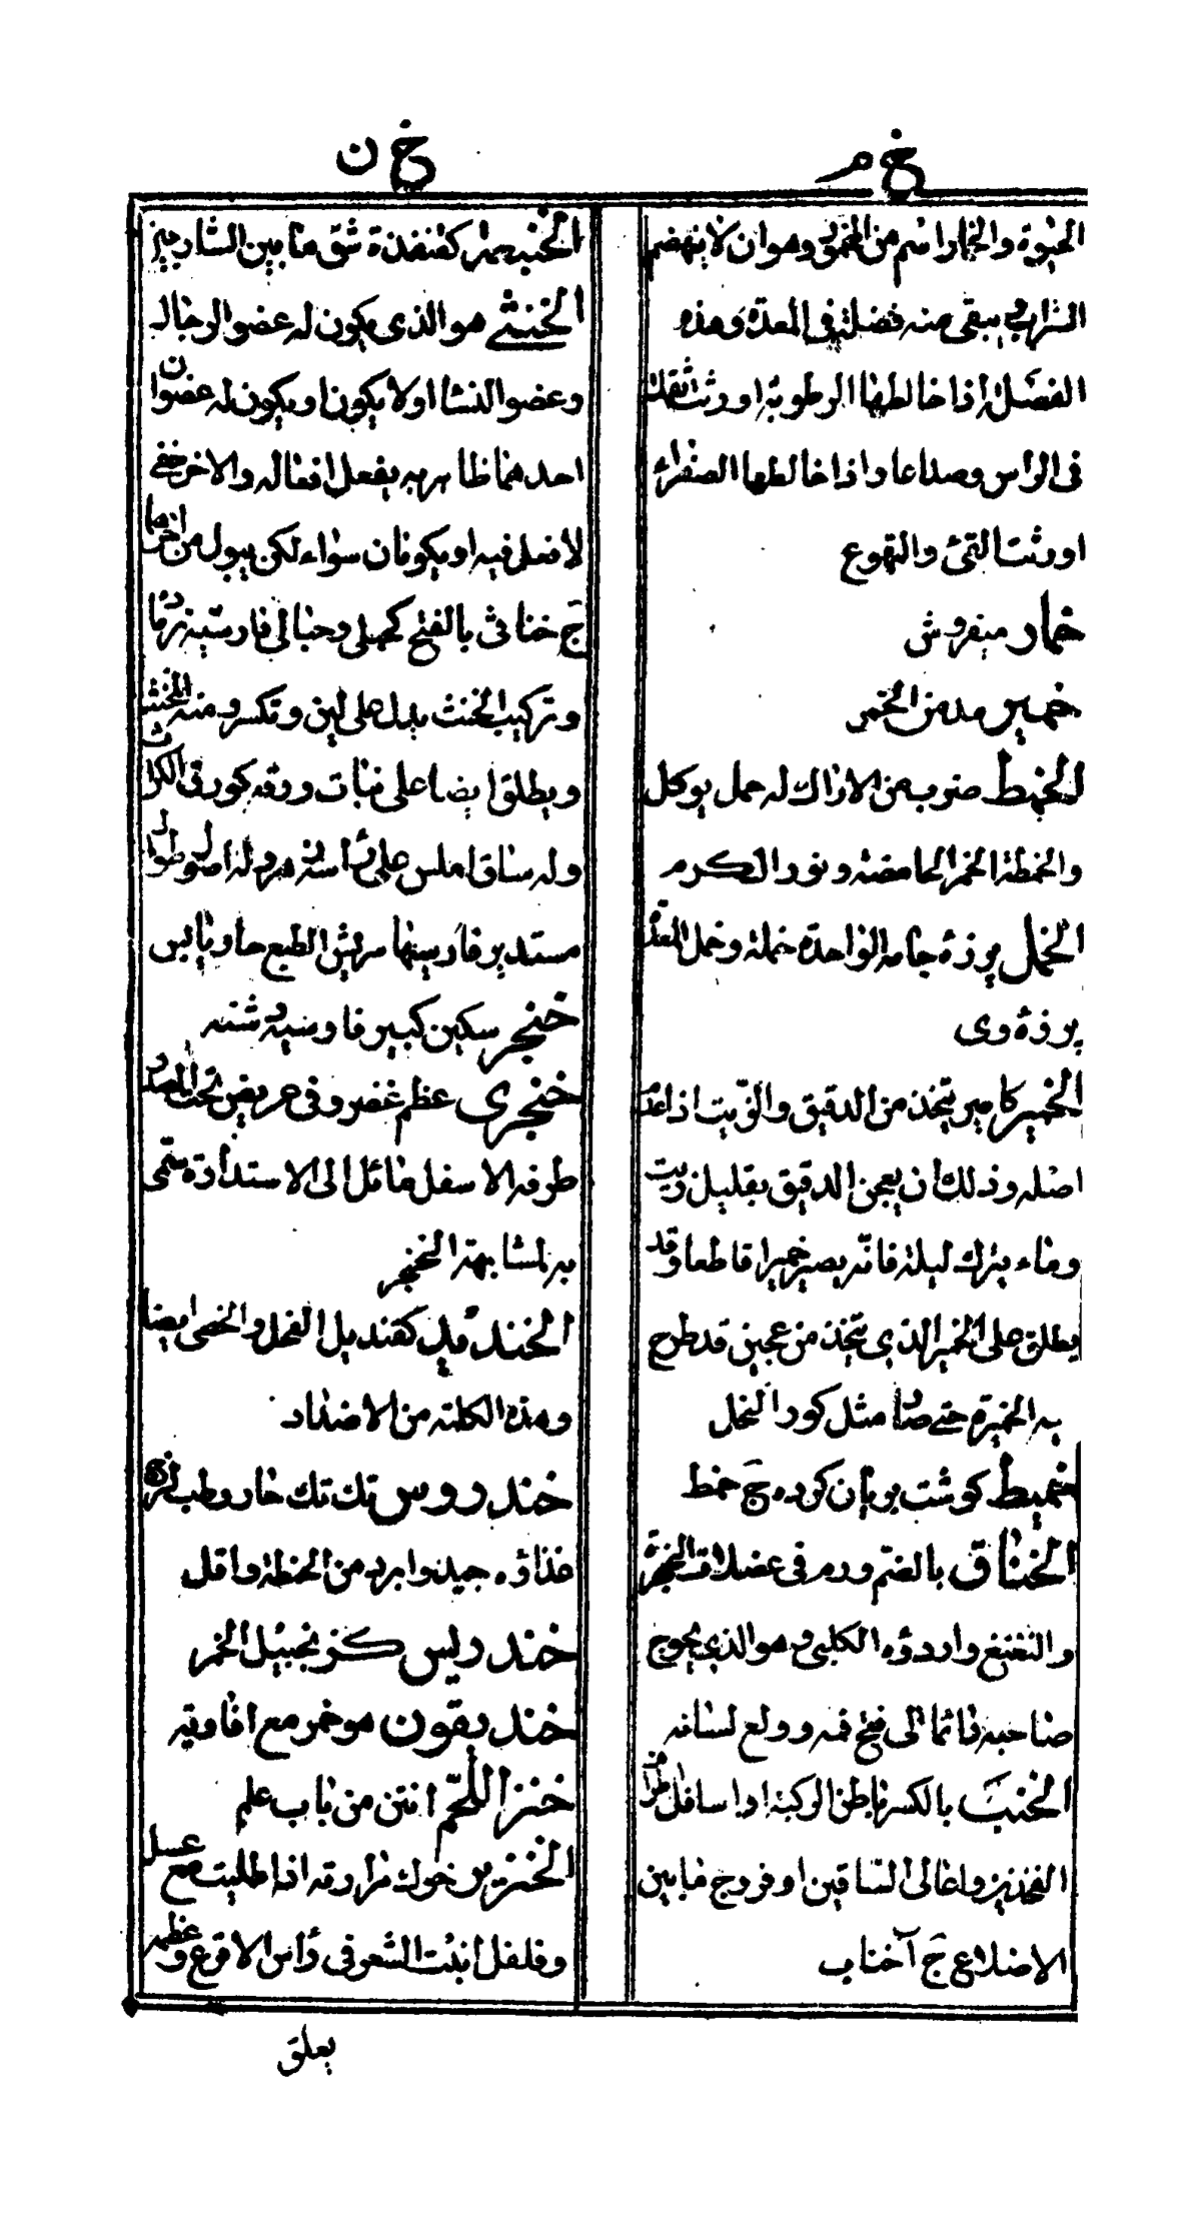 خ م
الحيوة والخمار اسم من المخمور وهو ان لا ينهضم
الشراب يبقى منه فضلة فى المعدة وهذه
الفضلة اذا خالطها الرطوبة اورثت ثقلا
فى الراس وصداعا واذا خالطها الصفراء
اورثت القئ والتهوع
خمار ميفروش
خمير مدمن الخمر
الخمط ضرب من الاراك له حمل يوكل
والخمطة الخمر الحامضة ونور الكرم
الخمل پرزۀ جامه الواحدة خملة وخمل المعدة
پرزۀ وى
الخمير كامير يتخذ من الدقيق والزيت اذا عد
اصله وذلك ان يعجن الدقيق بقليل زيت
وماء يترك ليلة فانه يصير خميرا قاطعا وقد
يطلق على الخمير الذى يتخذ من عجين قد طرح
به الخميرة حتى صار مثل كور النحل
خميط كوشت بريان كرده ج خمط
الخناق بالضم ورم فى عضلات الحنجرة
والنغنغ واردؤه الكلبى وهو الذى يحوج
صاحبه دائما الى فتح فمه وولع لسانه
الخنب بالكسر باطن الركبة او اسافل اطراف
الفخذين واعالى الساقين او فروج ما بين
الاضلاع ج آخناب
خ ن
كقنفذة شق ما بين الشاربين
الخنثى هو الذى يكون له عضو الرجال
وعضو النسا او لا يكونا او يكون له عضوان
احدهما ظاهر به يفعل افعاله والاخر خفى
لا فعل فيه او يكونان سواء لكن يبول من احدهما
ج خناثى بالفتح كحبلى وحبالى فارسيته نرماده
وتركيب الخنث يدل على لين وتكسر ومنه المخنث
ويطلق ايضا على نبات ورقه كورق الكراث
وله ساق املس على راسه زهر وله اصول طوال
مستدير فارسيتها سريش الطبع حار يابس
خنجر سكين كبير فارسيه دشنه
خنجرى عظم غضروفى عريض تحت الصدر
طرفه الاسفل مائل الى الاستدارة سمى
به لمشابهته الخنجر
الخنذيذ كقنديل الفحل والخصى ايضا
وهذه الكلمة من الاضداد
خندروس تك تك خار رطب لزج
غذاؤه جيد وابرد من الحنطة واقل
خندريس كزنجبيل الخمر
خنديقون هو خمر مع افاويه
خنز اللحم انتن من باب علم
الخنزير خوك مرارته اذا طليت مع عسل
وفلفل انبت الشعر فى راس الاقرع وعظمه
يعلق